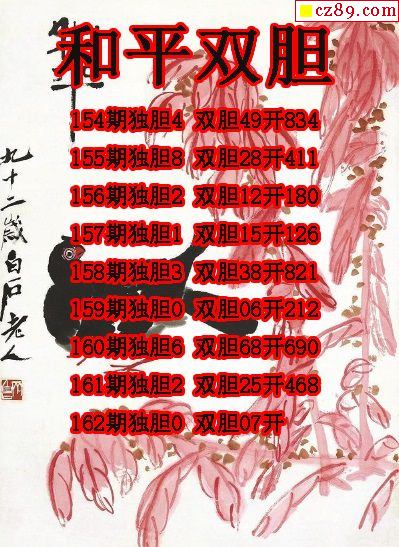 cz89.com
和平双胆
154期独胆4 双胆49开834
155期独胆8 双胆28开411
156期独胆2 双胆12开180
157期独胆1 双胆15开126
158期独胆3 双胆38开821
159期独胆0 双胆06开212
160期独胆6 双胆68开690
161期独胆2 双胆25开468
162期独胆0 双胆07开
九十二岁白石老人